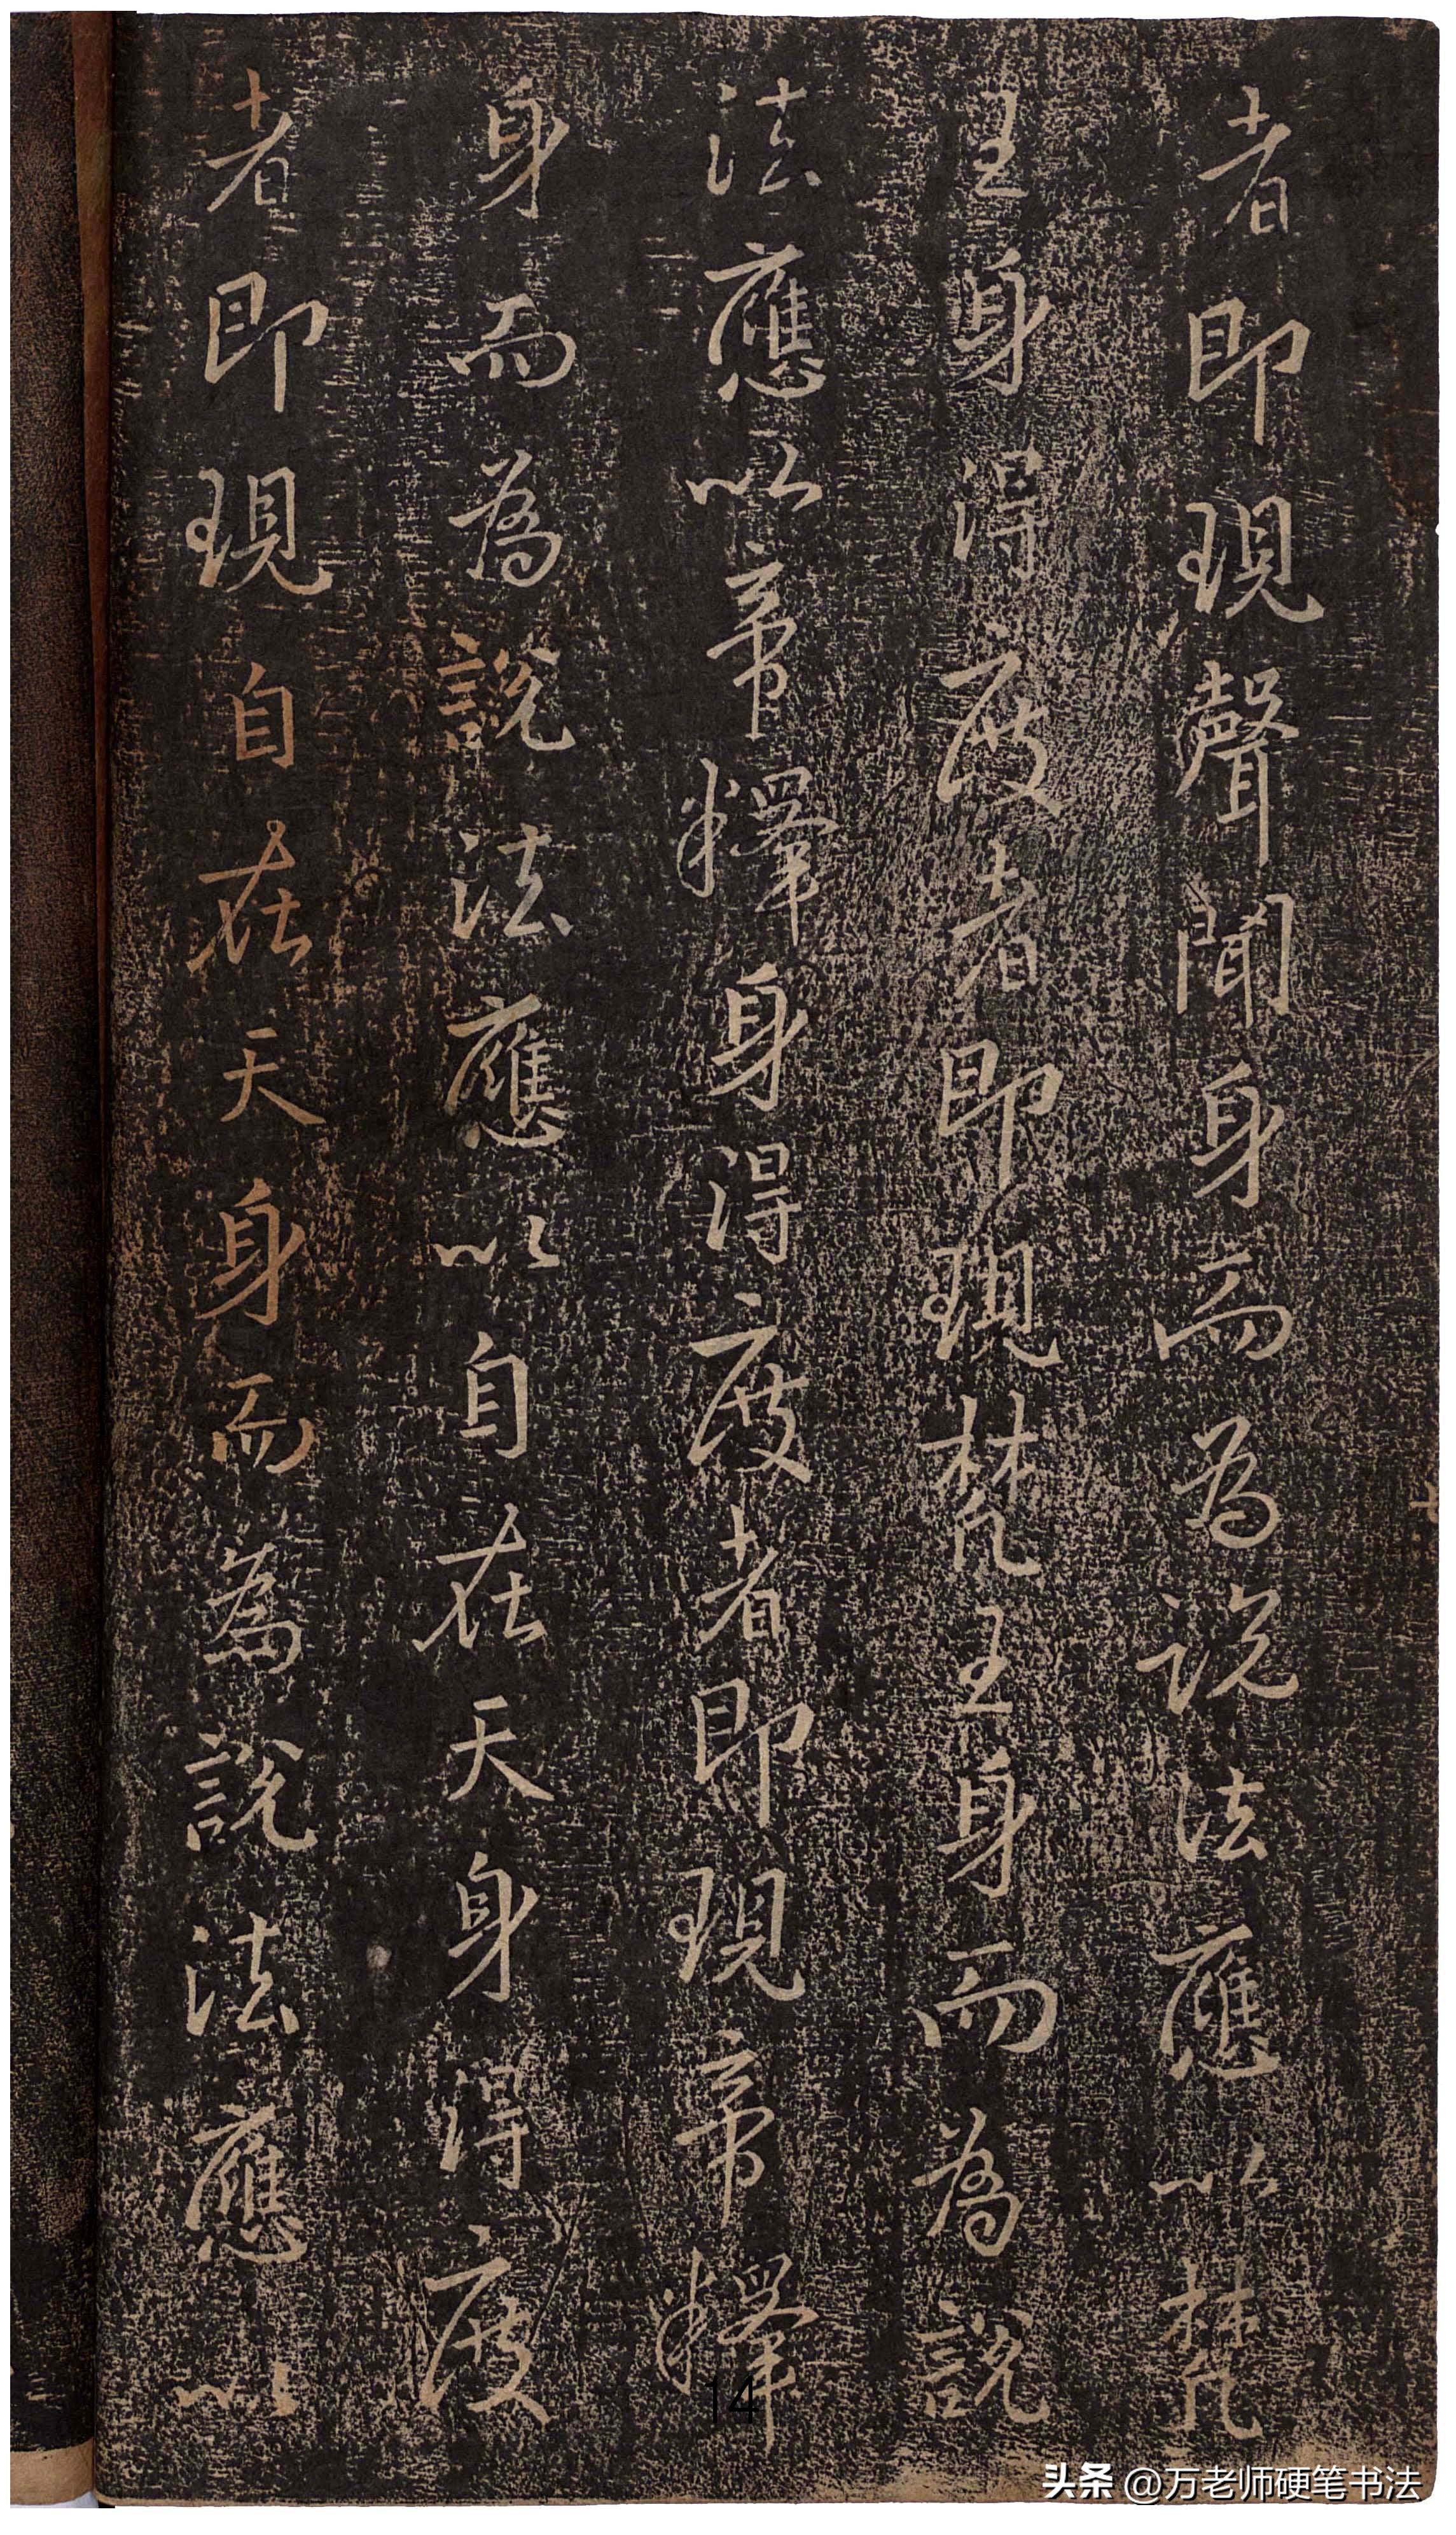 者即現聲聞身而為說法應以梵
王身得度者即現梵王身而為說
法應以帝釋身得度者即現帝釋
身而為說法應以自在天身得度
者即現自在天身而為說法應以
14
头条 @万老师硬笔书法